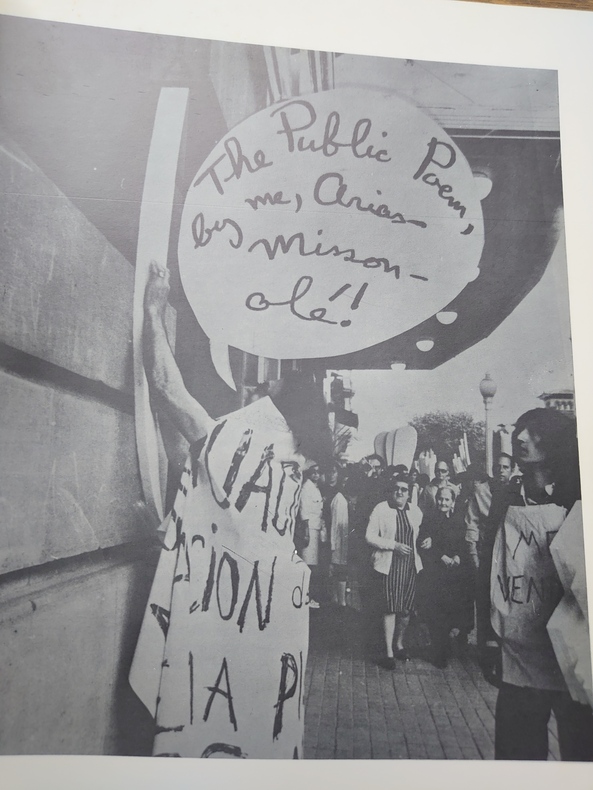 The Public Poem,
by me, Arias-
Misson-
olé!!
UAD
CION d
IA P
ME
VEN